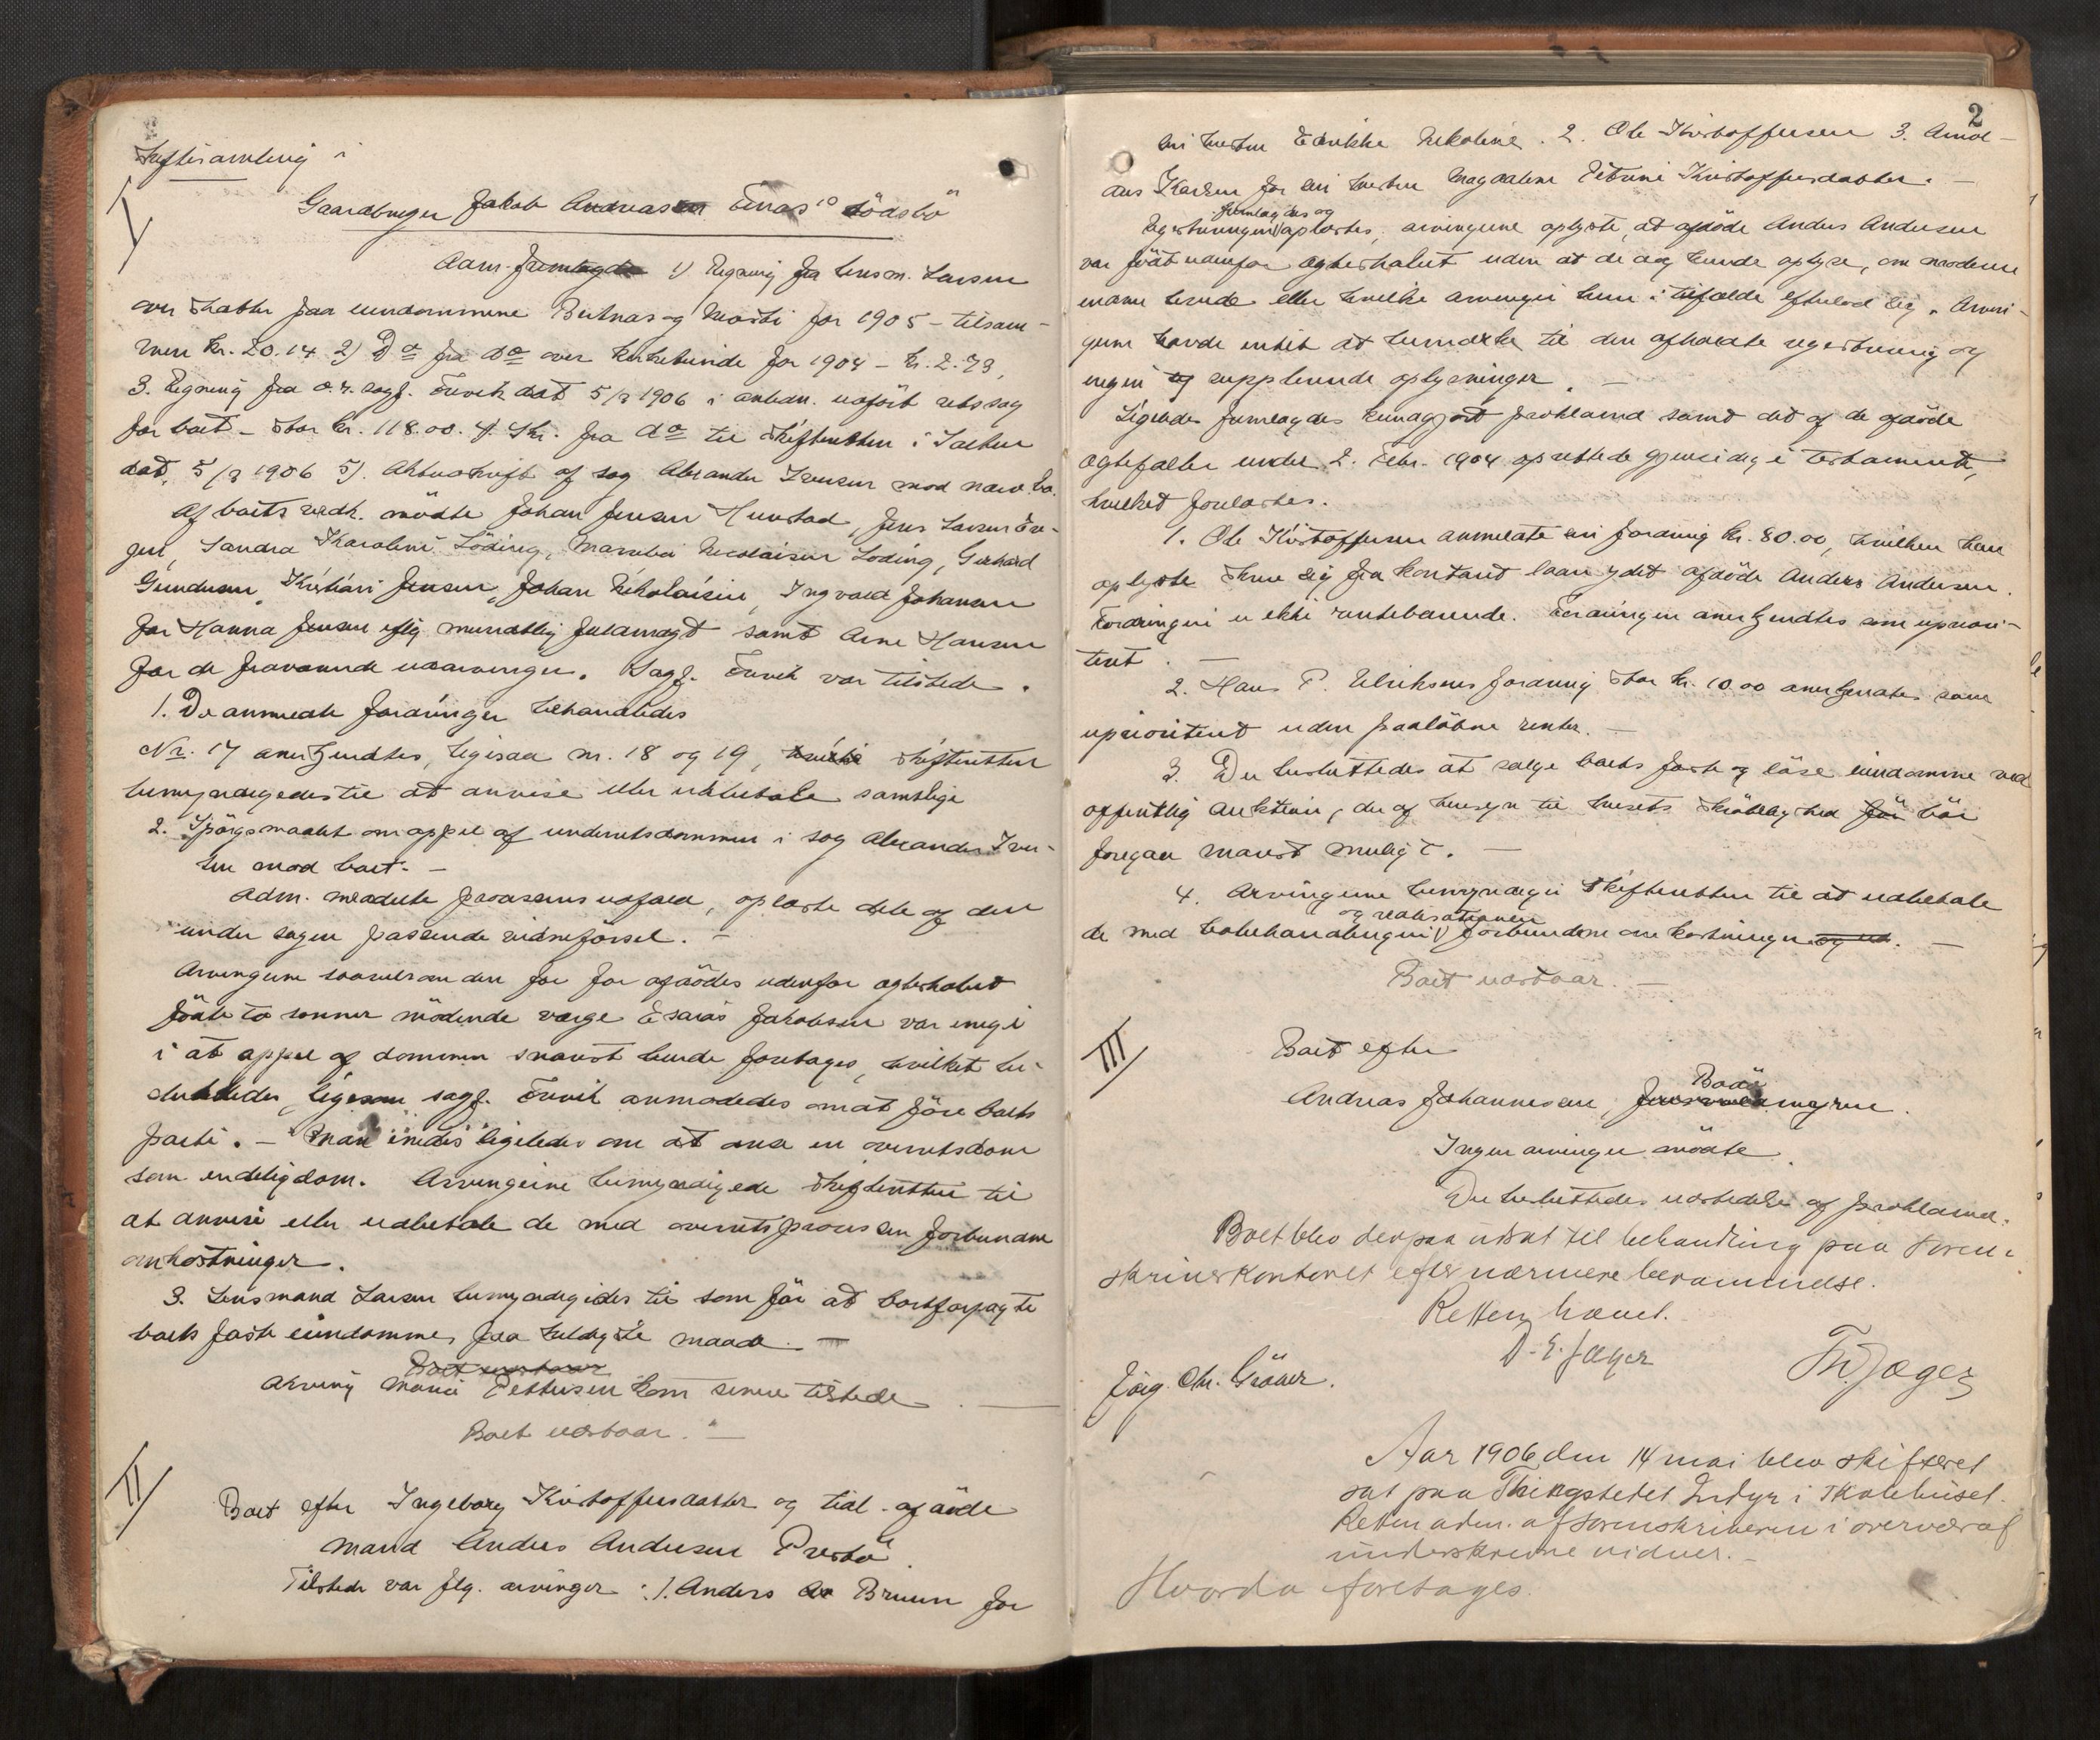 Skiftesamling i
I/
Gaardbruger Jakob Andreas Einas's Lödsbö
Adm. fremlagde 1) Regning fra lensm. Larsen
over skatter paa eiendommene og for 1905 – tilsam-
men kr. 20.14 2) Do fra do over for 1904 – kr. 2.73,
3. Regning fra o.r. sagf. Ervik dat 5/3 1906 i anledn. udfört retssag
for boet – stor kr. 118.00. 4. Skr. fra do til skifteretten i Salten
dat. 5/3 1906 5). Aktudskrift af sag Alexander Iversen mod nærv. bo.
Af boets vedk. mödte Johan Jensen Hunstad, Jens Larsen
Sandra Karoline Löding, Nicolaisen Löding, Gerhard
Gundersen, Kristian Jensen, Johan Nikolaisen, Ingvald Johansen
for Hanna Jensen iflg mundtlig fuldmagt samt Arne Hansen
for de fraværende udarvinger. Sagf. Ervik var tilstede.
1. De anmeldte fordringer behandledes
Nr. 17 anerkjendtes, ligesaa nr. 18 og 19, skifteretten
bemyndigedes til at anvise eller udbetale samtlige
2. Spörgsmaalet om appel af underretsdommen i sag Alexander Iver-
sen mod boet. –
Adm. meddelte processens udfald, oplæste dele af den
under sagen passerede vidneförsel. –
Arvingerne saavelsom den for for afdödes udenfor ægteskabet
födte to sönner mödende værge Esaias Jakobsen var enige
i at appel af dommen snarest burde foretages, hvilket be-
sluttedes, ligesom sagf. Ervik anmodedes om at före boets
parti. – Man enedes ligeledes om at anse en overretsdom
som endelig dom. Arvingerne bemyndigede skifteretten til
at anvise eller udbetale de med overretsprocessen forbundne
omkostninger.
3. Lensmand Larsen bemyndigedes til som för at bortforpagte
boets faste eiendomme paa heldigste maade. –
Boet udstaar
Arving Pettersen kom senere tilstede. –
Boet udstaar. –
II/
Boet efter Ingeborg Kristoffersdatter og tidl. afdöde
mand Anders Andersen Prestö.
Tilstede var flg. arvinger: 1. Anders Bruun for
2
sin hustru Nikoline. 2. Ole Kristoffersen 3. Amd-
aus Karlsen for sin hustru Magdalene Petrine Kristoffersdatter. –
fremlagdes og
Registreringen oplæstes, arvingerne oplyste, at afdöde Anders Andersen
var födt udenfor ægteskabet uden at de dog kunde oplyse, om moderen
endnu levede eller hvilke arvinger hun i tilfælde efterlod sig. Arvin-
gerne havde intet at bemærke til den afholdte registrering og
ingen supplerende oplysninger. –
Ligeledes fremlagdes kundgjort proklama samt det af de afdöde
ægtefæller under 2. Febr. 1904 oprettede gjensidige testamente,
hvilket forelæstes.
1. Ole Kristoffersen anmeldte en fordring kr. 80.00, hvilken han
oplyste skrev sig fra kontant laan ydet afdöde Anders Andersen.
Fordringen er ikke rentebærende. Fordringen anerkjendtes som upriori-
tert. –
2. Hans P. Ulriksens fordring stor kr. 10.00 anerkjendtes som
uprioritert uden paalöbne renter. –
3. Det besluttedes at sælge boets faste og löse eiendomme ved
offentlig auktion, der af hensyn til husets skröbelighed för bör
foregaa snarest muligt. –
4. Arvingerne bemyndiger skifteretten til at udbetale
og realisationen
de med bobehandlingen forbundne omkostninger og ud. –
Boet udstaar. –
III/
Boet efter
Andreas Johannesen, myren.
Ingen arvinger mödte.
Det besluttedes udstedelse af proklama.
Boet blev derpaa udsat til behandling paa Soren-
skriverkontoret efter nærmere berammelse.
Retten hævet.
D. E. Jæger
Th. Jæger
Jörg. Chr. Gröner.
Aar 1906 den 14 mai blev skifteret
sat paa Thingstedet Inndyr i skolehuset.
Retten adm. af Sorenskriveren i overvær af
underskrevne vidner. –
Hvorda foretages.